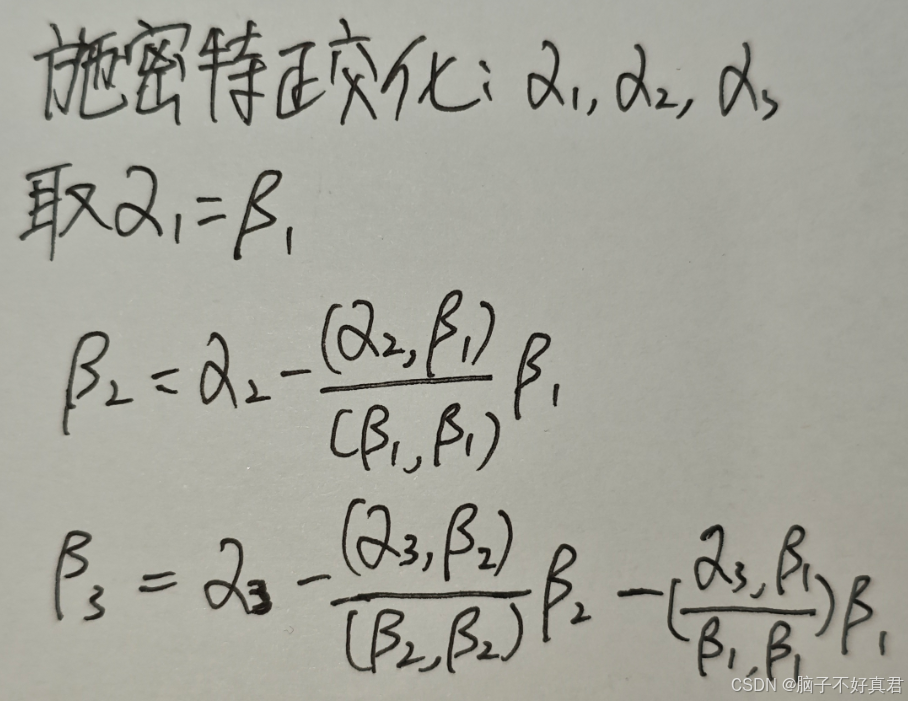 施密特正交化: α₁, α₂, α₃
取α₁=β₁
β₂ = α₂ - (α₂,β₁)/(β₁,β₁) β₁
β₃ = α₃ - (α₃,β₂)/(β₂,β₂) β₂ - (α₃,β₁/β₁,β₁) β₁
CSDN @脑子不好真君